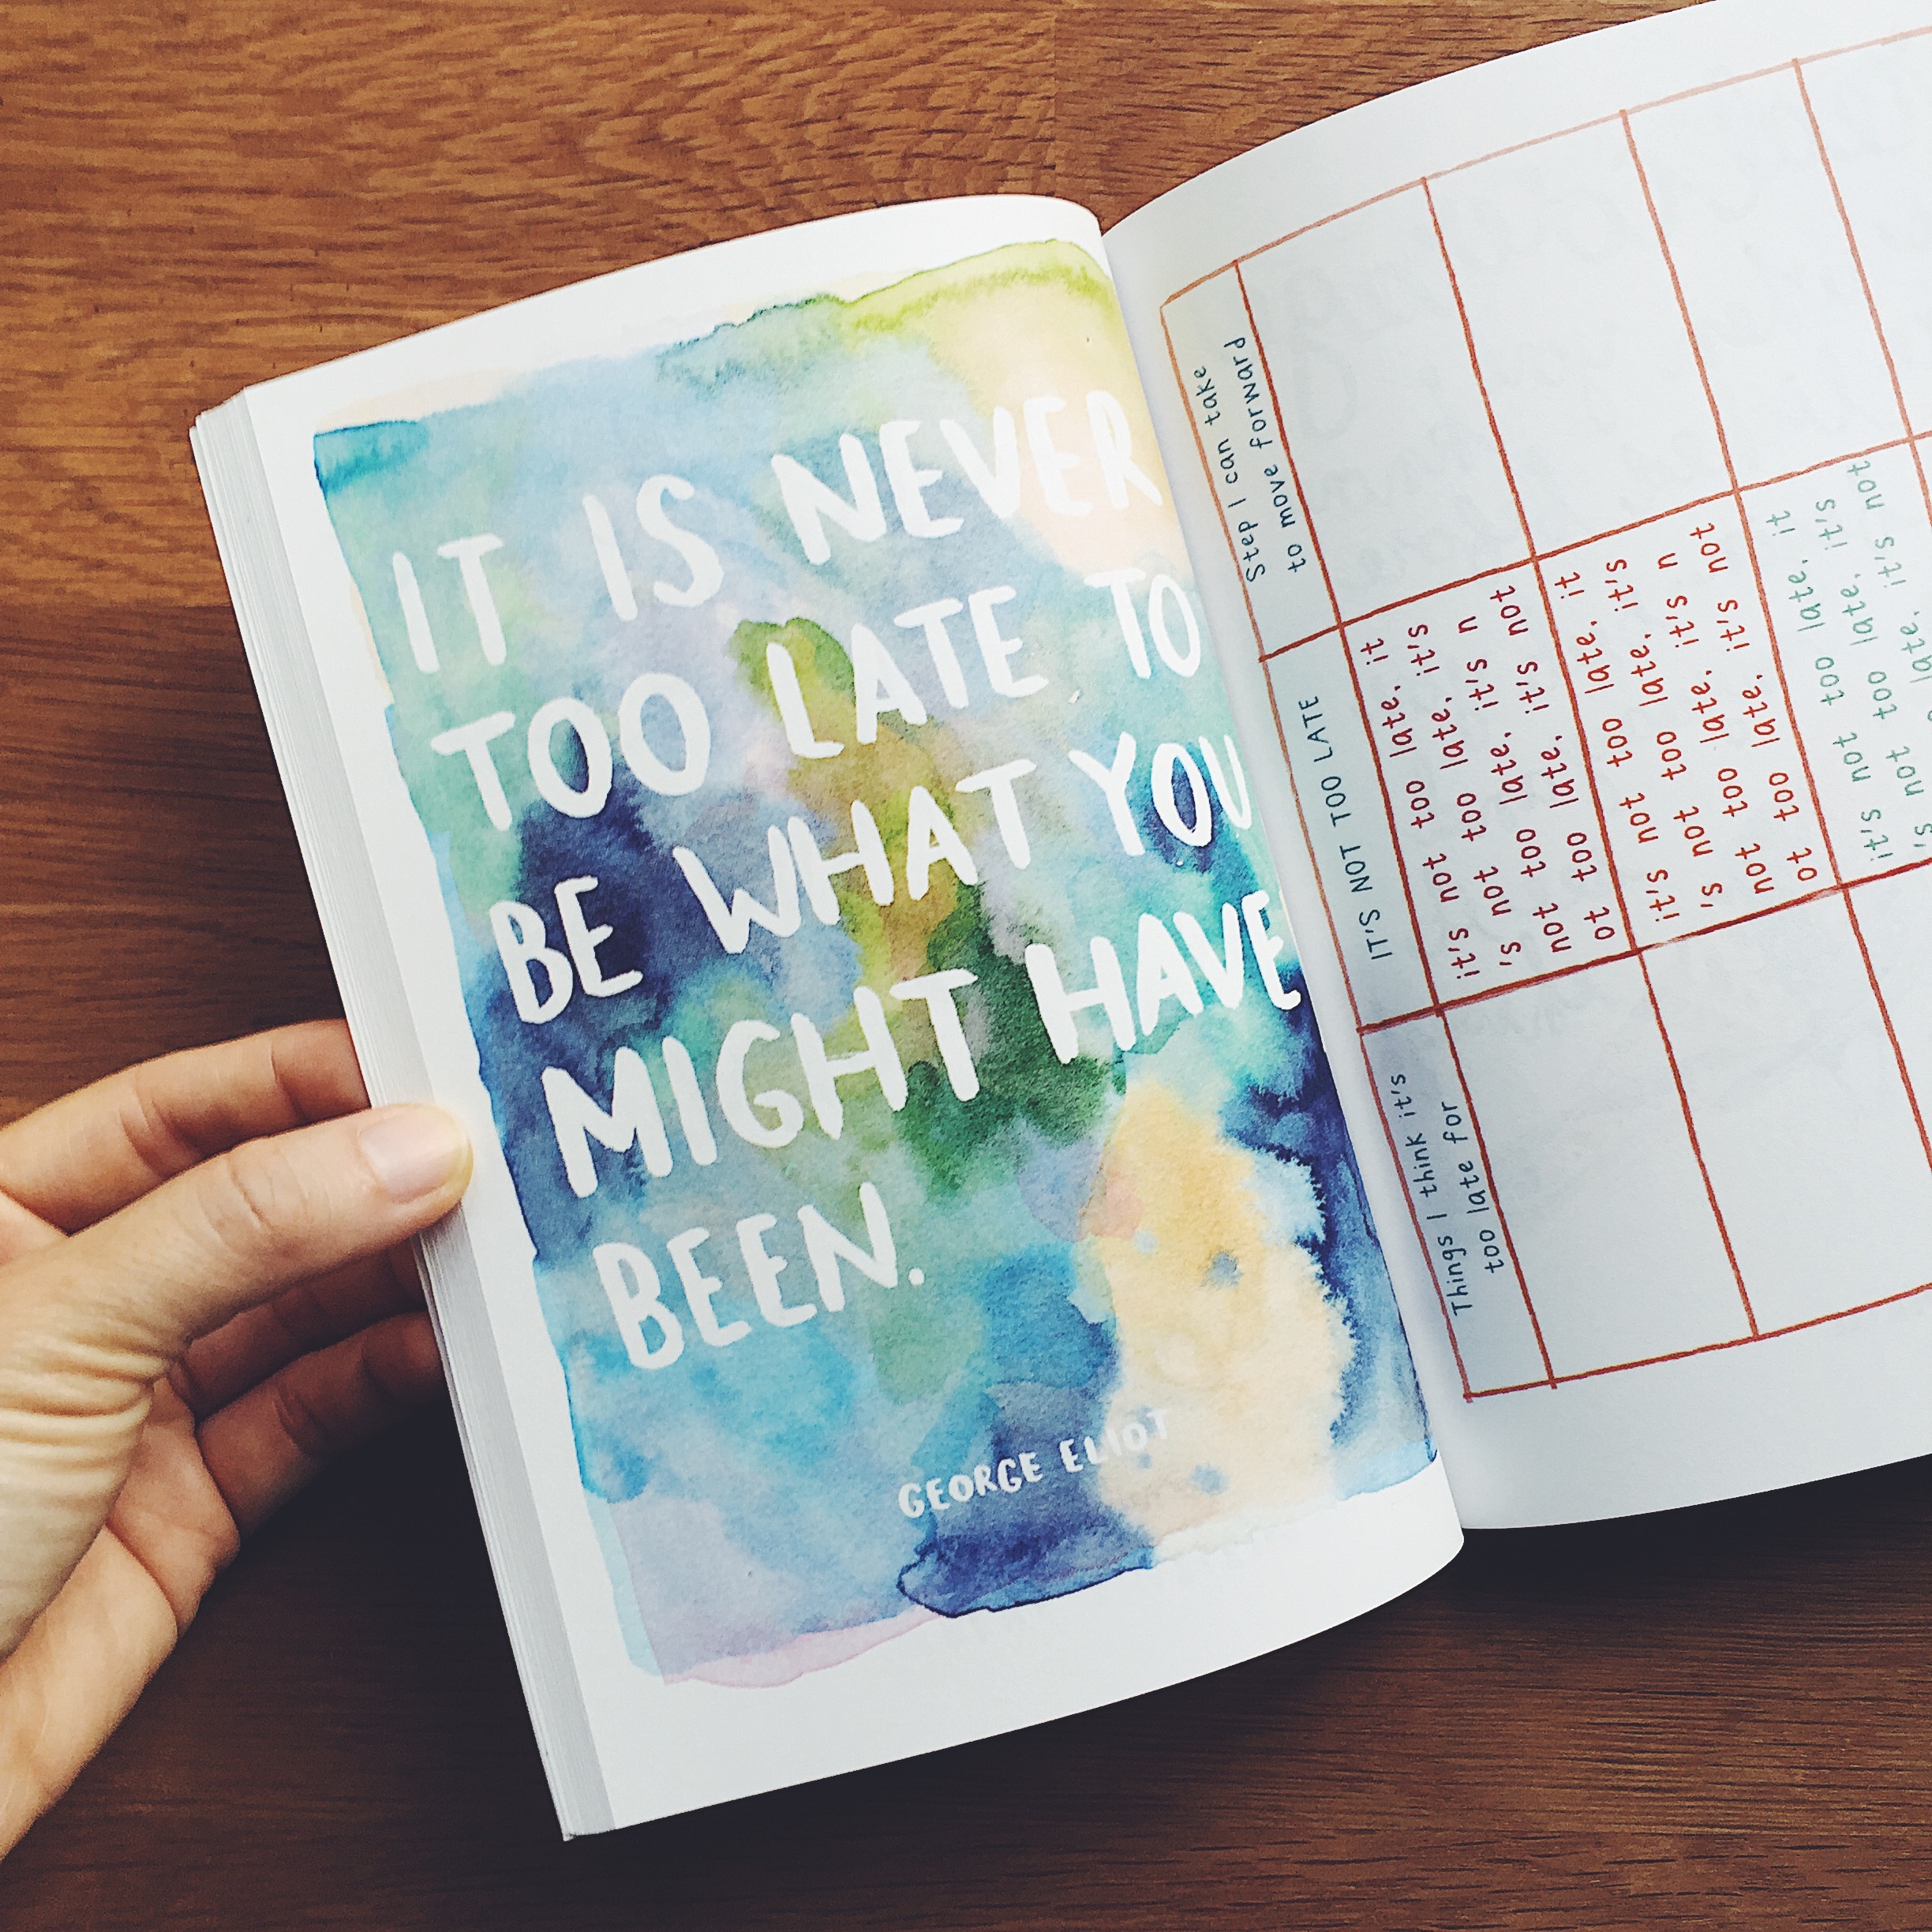 IT IS NEVER
TOO LATE TO
BE WHAT YOU
MIGHT HAVE
BEEN.
GEORGE ELIOT
Things I think it's
too late for
IT'S NOT TOO LATE
Step I can take
to move forward
it's not too late, it
's not too late, it's
not too late, it's n
ot too late, it's not
it's not too late, it
's not too late, it's
not too late, it's n
ot too late, it's not
it's not too late, it
's not too late, it's
late, it's not